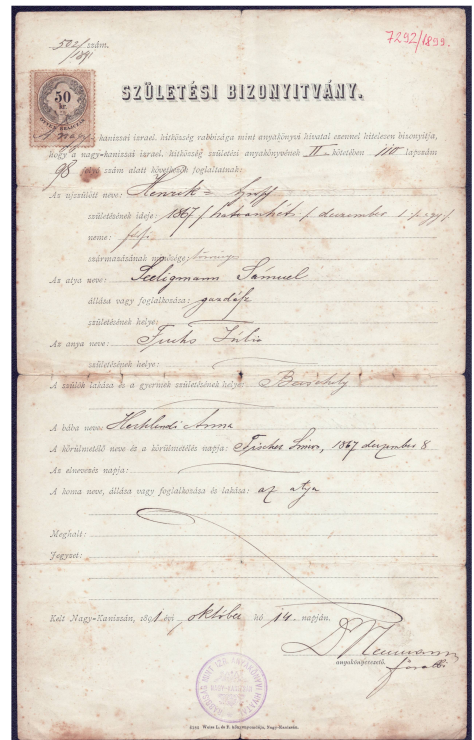 502/ szám.
1891
7292/1899.
50
kr.
SZÜLETÉSI BIZONYITVÁNY.
A nagy-kanizsai izrael. hitközség rabbisága mint anyakönyvi hivatal ezennel hitelesen bizonyitja,
hogy a nagy-kanizsai izrael. hitközség születési anyakönyvének II. kötetében 110 lapszám
98 folyó szám alatt következők foglaltatnak:
Az ujszülött neve: Henrek =
születésének ideje: 1867 / hatvanhét / dezember 1 / egy /.
neme: fi
származásának minősége: törvényes
Az atya neve: Seeligmann Sámuel
állása vagy foglalkozása: gazdász
születésének helye:
Az anya neve: Fuchs Júlia
születésének helye:
A szülők lakása és a gyermek születésének helye:
A bába neve: Anna
A körülmetélő neve és a körülmetélés napja: Fischer Simon, 1867 dezember 8
Az elnevezés napja:
A koma neve, állása vagy foglalkozása és lakása: az atya
Meghalt:
Jegyzet:
Kelt Nagy-Kanizsán, 1891 évi október hó 14. napján.
Dr Neumann
anyakönyvvezető.
főrabbi